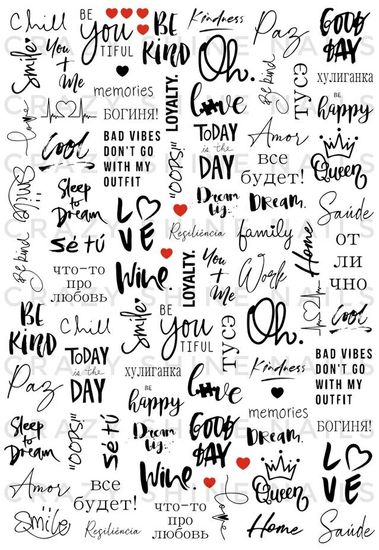 Chill
BE
you
TIFUL
BE
KIND
Kindness
Paz
GOOD
DAY
Smile
You
+
Me
memories
LOYALTY.
Oh.
Be kind
тусэ
хулиганка
BE
happy
Love
БОГИНЯ!
love
Cool
BAD VIBES
DON'T GO
WITH MY
OUTFIT
"OOPS!"
TODAY
is the
DAY
Amor
все
будет!
Queen
Smile
Sleep
to
Dream
LOVE
Dream
big.
DREAM.
Saúde
Be kind
sé tú
Resiliência
family
Home
от
ли
чно
что-то
про
любовь
Wine.
LOYALTY.
You
+
Me
Work
Cool
BE
KIND
Chill
Smile
BE
you
TIFUL
тусэ
Oh.
TODAY
is the
DAY
хулиганка
Kindness
BAD VIBES
DON'T GO
WITH MY
OUTFIT
Paz
BE
happy
love
memories
Sleep
to
Dream
"OOPS!"
sé tú
Dream
big.
GOOD
DAY
DREAM.
БОГИНЯ!
LOVE
Amor
все
будет!
Wine.
Home
Queen
Saúde
Smile
Resiliência
что-то
про
любовь
Love
Work
family
CRAZY SHINE NAILS